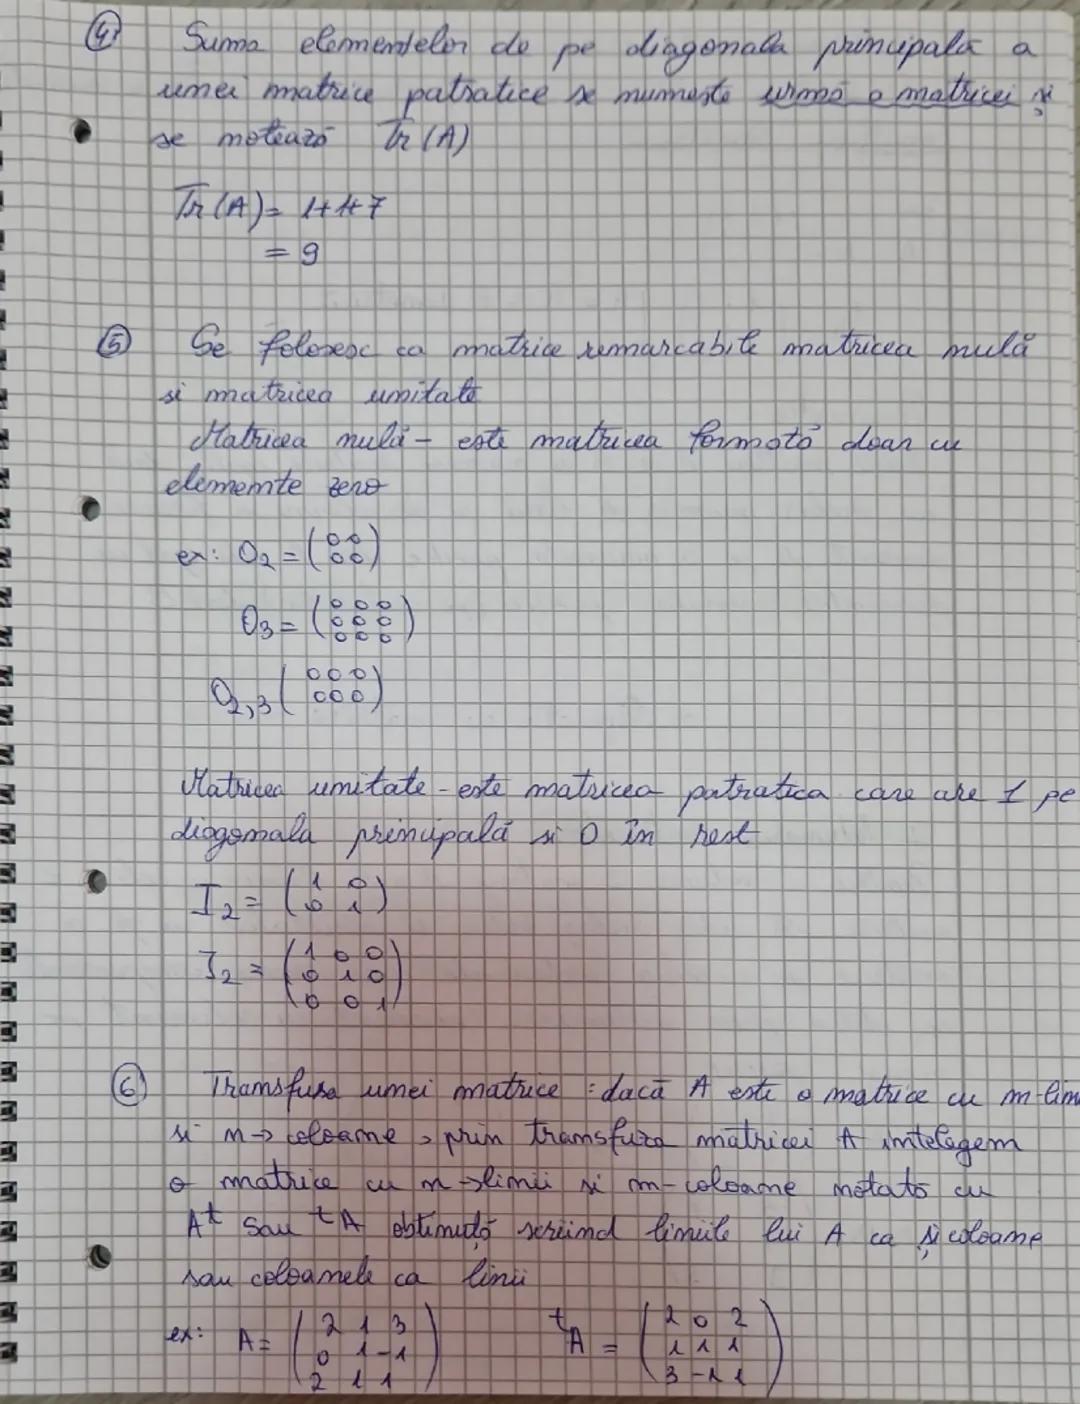 ④ Suma elementelor de pe diagonala principală a
unei matrice patratice se numeste urma a matricei și
se notează Tr(A)
Tr(A) = 1+1+7
= 9
⑤ Se folosesc ca matrice remarcabile matricea nulă
si matricea unitate
Matricea nulă - este matricea formată doar cu
elemente zero
ex: O2 = (0 0
0 0)
O3 = (0 0 0
0 0 0
0 0 0)
O2,3 (0 0 0
0 0 0)
Matricea unitate - este matricea patratica care are 1 pe
diagonala principală si 0 în rest
I2 = (1 0
0 1)
I2 = (1 0 0
0 1 0
0 0 1)
⑥ Transfusa unei matrice : dacă A este o matrice cu m-lini
si n→ coloane, prin transfuza matricei A intelegem
o matrice cu n→linii si m-coloane notată cu
A^t sau ^tA obtinută scriind liniile lui A ca și coloane
sau coloanele ca linii
ex: A = (2 1 3
0 1 -1
2 1 1) ^tA = (2 0 2
1 1 1
3 -1 1)